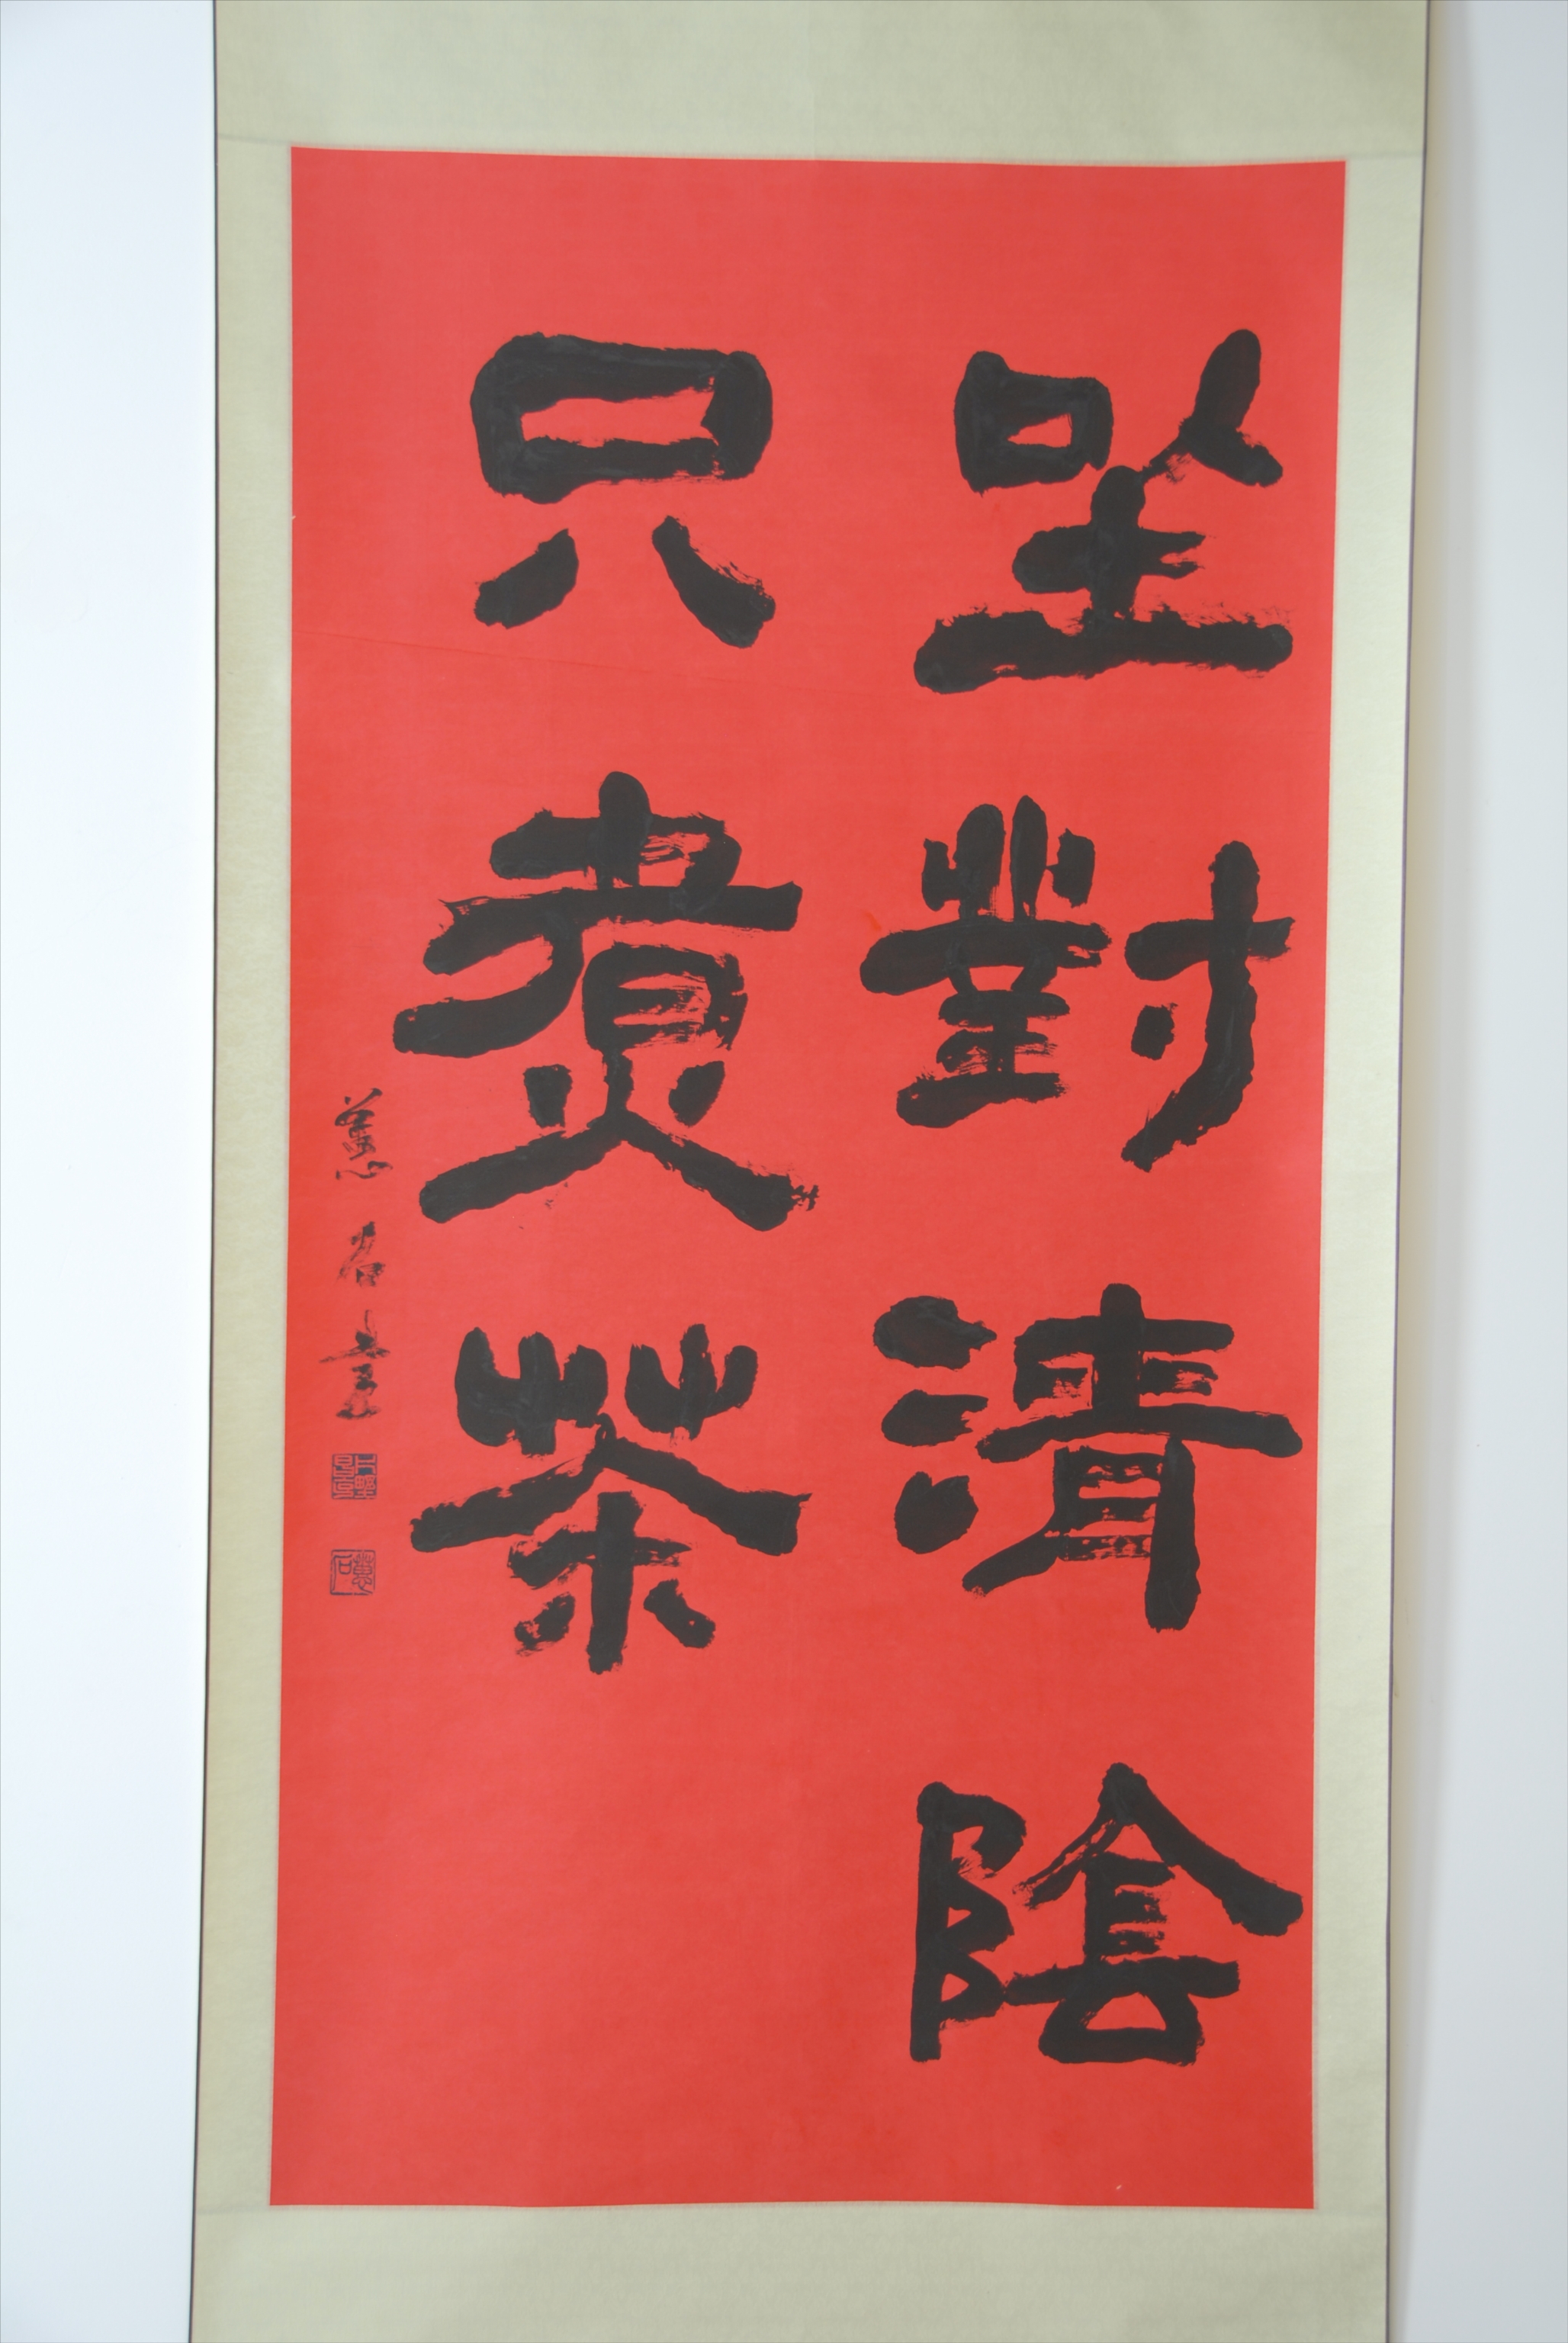 坐對清陰
只煮茶
蕙石書